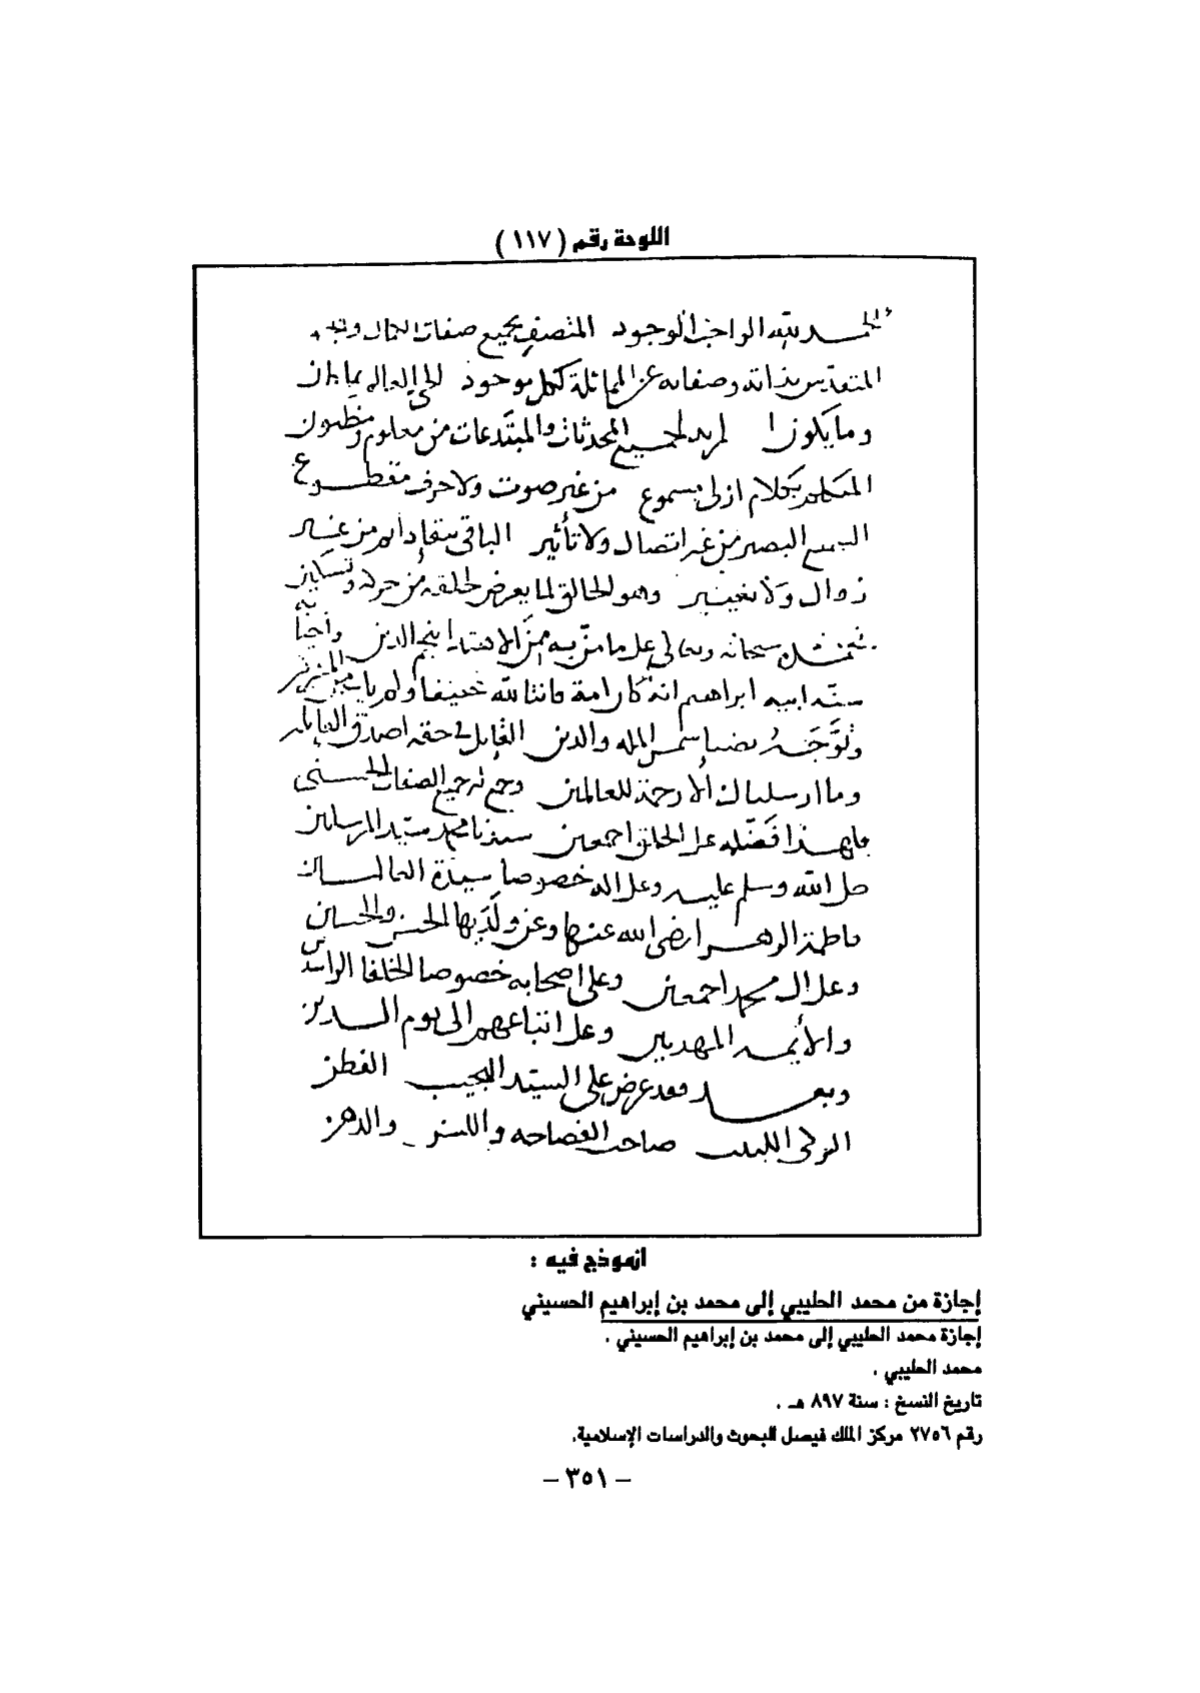 اللوحة رقم ( ١١٧ )
الحمد لله الواجب الوجود المتصف بجميع صفات الكمال
المتقدس بذاته وصفاته عن المماثلة لكل موجود الحي العالم بما كان
وما يكون المريد لجميع المحدثات والمبتدعات من معلوم ومظنون
المتكلم بكلام ازلي مسموع من غير صوت ولا حرف مقطوع
السميع البصير من غير اتصال ولا تأثير الباقي من غير
زوال ولا تغيير وهو الخالق لما يعرض لخلقه من حركة وتسكين
سبحانه وتعالى على ما منّ به من الاهتدا
سنة ابيه ابراهيم انه كان امة قانتا لله حنيفا ولم يك من المشركين
الملة والدين القايل في حقه اصدق القايلين
وما ارسلناك الا رحمة للعالمين وجمع له جميع الصفات الحسنى
بهذا فضله على الخلق اجمعين سيدنا محمد سيد المرسلين
صلى الله وسلم عليه وعلى اله خصوصا سيدة العالمين
فاطمة الزهرا رضي الله عنها وعن ولديها الحسن والحسين
وعلى ال محمد اجمعين وعلى اصحابه خصوصا الخلفا الراشدين
والأيمة المهديين وعلى اتباعهم الى يوم الدين
وبعد فقد عرض علي السيد النجيب الفطن
الزكي اللبيب صاحب الفصاحه واللسن والذهن
انموذج فيه :
إجازة من محمد الحليبي إلى محمد بن إبراهيم الحسيني
إجازة محمد الحليبي إلى محمد بن إبراهيم الحسيني .
محمد الحليبي .
تاريخ النسخ : سنة ٨٩٧ هـ .
رقم ٢٧٥٦ مركز الملك فيصل للبحوث والدراسات الإسلامية.
– ٣٥١ –